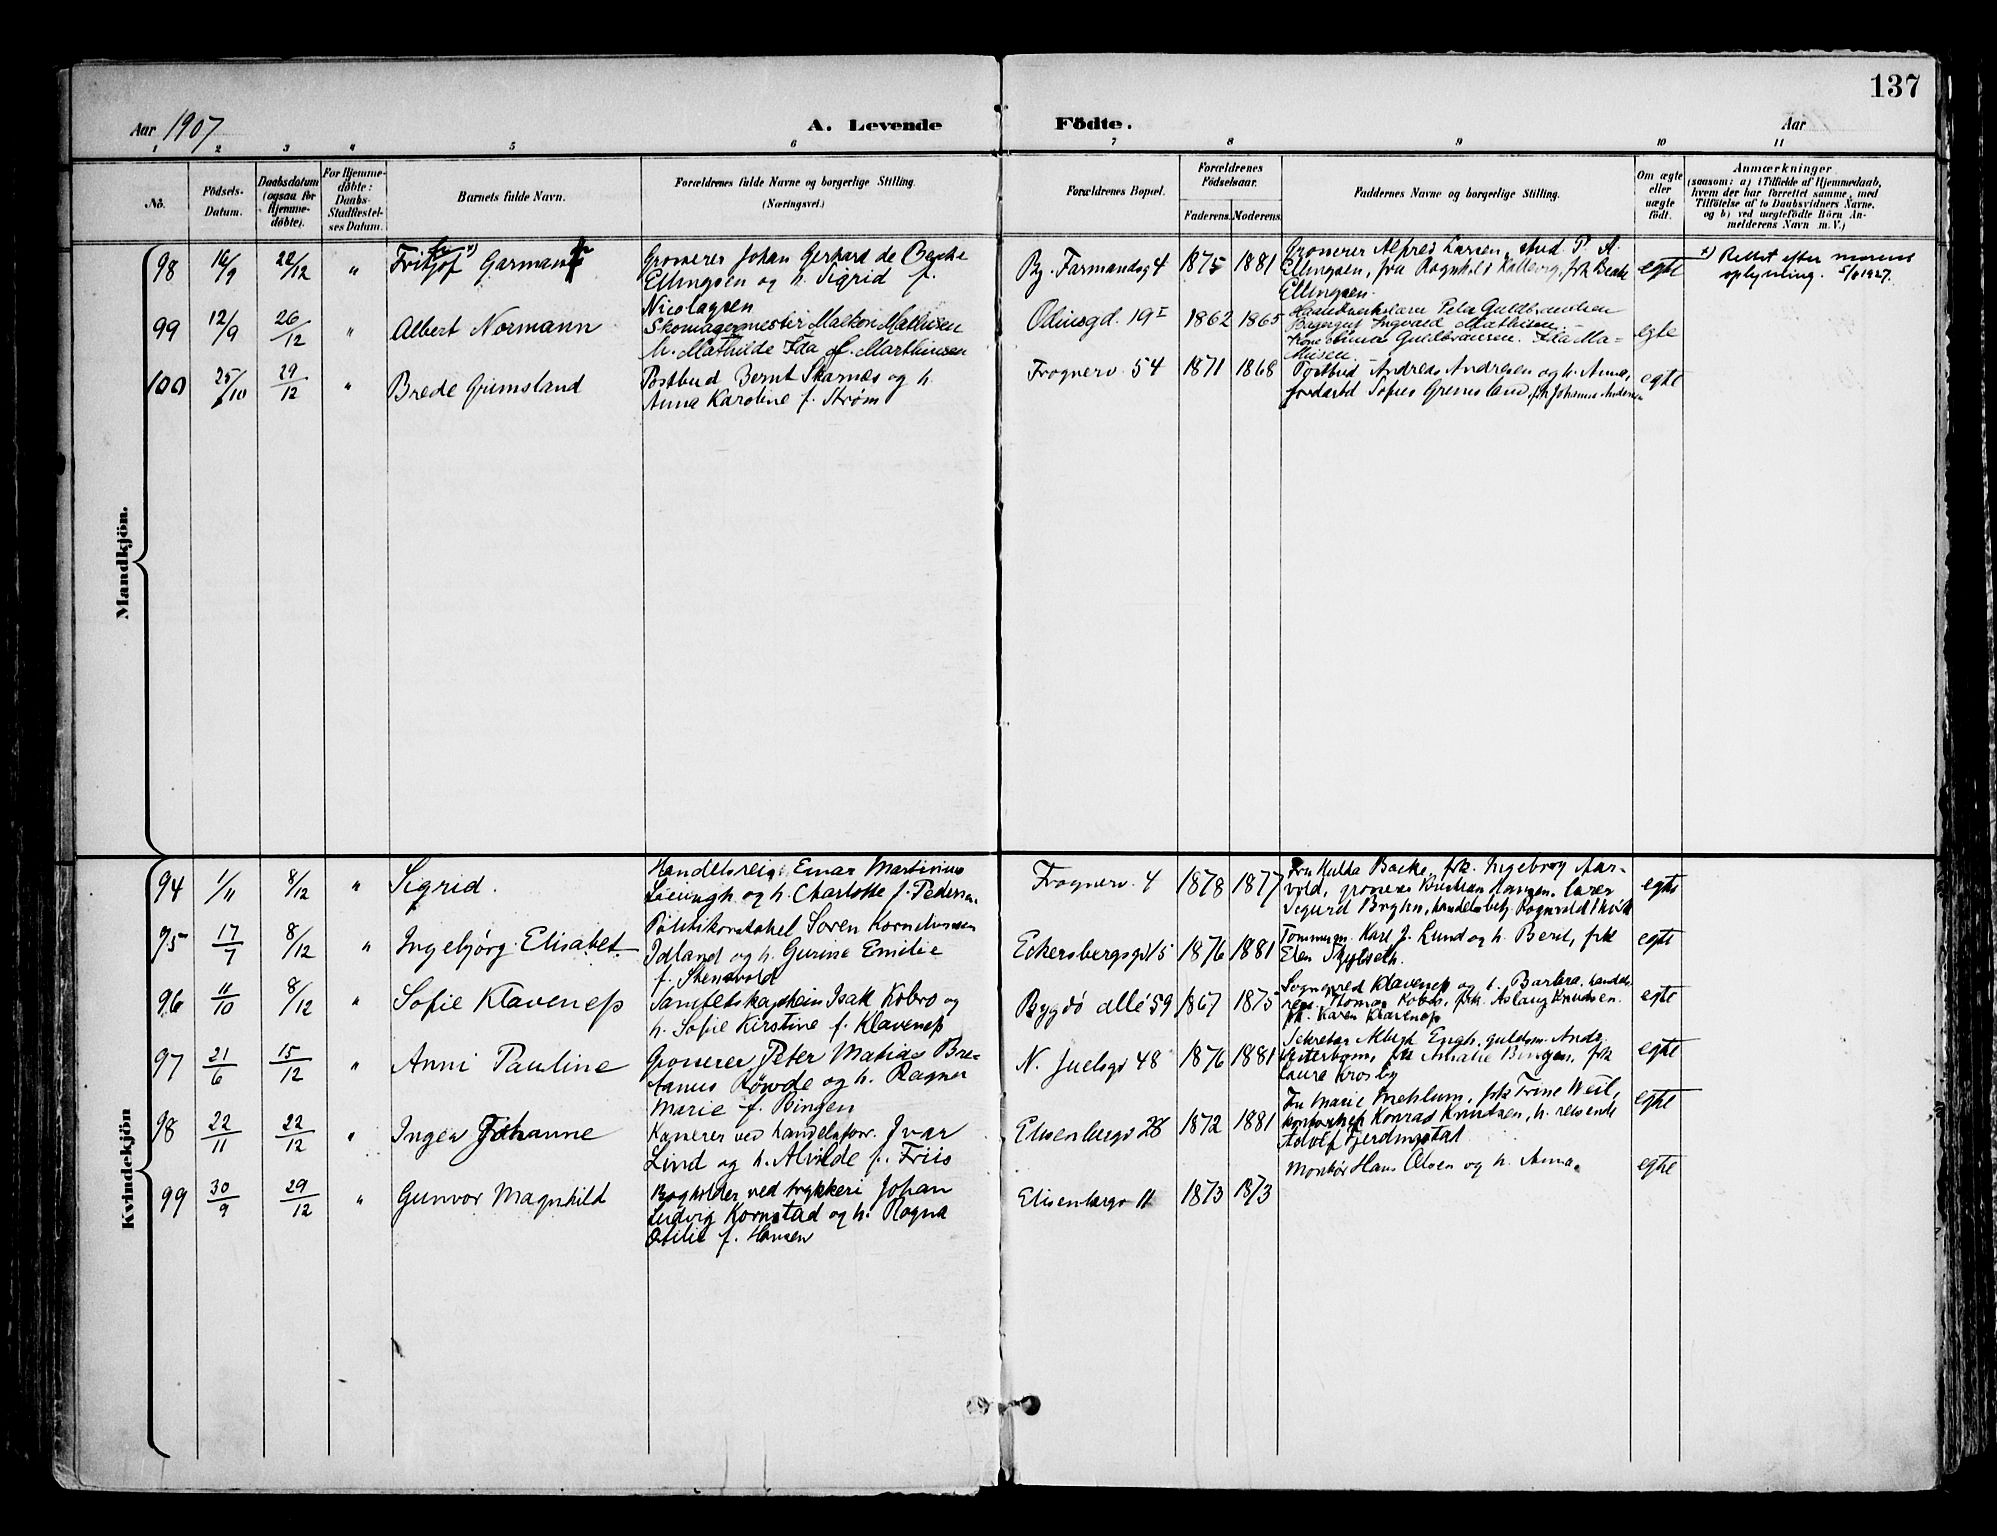 137
Aar 1907
A. Levende Födte.
Aar
1 2 3 4 5 6 7 8 9 10 11
No.
Födsels-Datum.
Daabsdatum (ogsaa for Hjemme-döbte).
For Hjemme-döbte: Daabs-Stadfæstel-ses Datum.
Barnets fulde Navn.
Forældrenes fulde Navne og borgerlige Stilling.
(Næringsvei.)
Forældrenes Bopæl.
Forældrenes Födselsaar.
Faderens. Moderens.
Faddernes Navne og borgerlige Stilling.
Om ægte eller uægte født.
Anmærkninger
(saasom: a) i Tilfælde af Hjemmedaab,
hvem der har forrettet samme, med
Tilföielse af to Daabsvidners Navne,
og b) ved uægtefödte Börn An-
melderens Navn m. V.)
Mandkjön.
98 16/9 22/12 " Fritjof Garman
Grosserer Johan Gerhard de Besche
Ellingsen og h. Sigrid f.
Nicolaysen
By. Farmandsg 4 1875 1881
Grosserer Alfred Larsen, stud P. A.
Ellingsen, fru Ragnhild Kallevig, frk Beate
Ellingsen.
egte
x) Rettet efter morens
oplysning. 1927.
99 12/9 26/12 " Albert Normann
Skomagermester Mathisen
h. Mathilde Ida f. Marthinsen
Odinsgd. 19 I 1862 1865
Peter Guldbrandsen
Ingvald Mathisen.
Kone Anna Guldbransen. Ida Ma-
thisen.
egte
100 25/10 29/12 " Brede Grimsland
Postbud Bernt Skarnæs og h.
Anna Karoline f. Strøm
Frognerv. 54 1871 1868
Postbud Andreas Andresen og h. Anna,
Sofies Grimsland, frk Johanne Andersen
egte
Kvindekjön
94 1/11 8/12 " Sigrid.
Handelsreis. Einar Martinius
og h. Charlotte f. Pedersen.
Frognerv. 4 1878 1877
Fru Hulda Backe, frk. Ingeborg Aar-
vold, grosserer Kristian Hansen, lærer
Sigurd Bryhn, handelsbetj Ragnvald
egte
95 17/7 8/12 " Ingebjörg Elisabet
Politikonstabel Soren Korneliussen
Idland og h. Gurine Emilie
f. Stensvold
Eckersbergsgd 15 1876 1881
Karl J. Lund og h. Berit, frk
Elen
egte
96 11/10 8/12 " Sofie Klaveness
Sanitetskaptein Isak Kobro og
h. Sofie Kirstine f. Klaveness
Bygdö allé 59 1867 1875
Sogneprest Klaveness og h. Barbra, handels-
reis. Thomas Kobro, frk. Aslaug Knudsen.
frk. Karen Klaveness
egte
97 21/6 15/12 " Anni Pauline
Grosserer Peter Matias Bre-
Røwde og h. Ragna
Marie f. Bingen
N. Juelsgd 48 1876 1881
Sekretær Engh, guldsm. Andr.
frk Amalie Bingen, frk
Laura Krosby
egte
98 22/11 22/12 " Inger Johanne
Kaserer ved handelsforr. Ivar
Lind og h. Alvilde f. Friis
Elisenbergv 28 1872 1881
Fru Marie Mehlum, frk Trine West,
kontorchef Konrad Knutsen, h. reisende
Adolf Gjerdingstad
egte
99 30/9 29/12 " Gunvor Magnhild
Bogholder ved trykkeri Johan
Ludvig Kornstad og h. Ragna
Otilie f. Hansen
Elisenbergv 11 1873 1873
Montør Hans Olsen og h. Anna.
egte